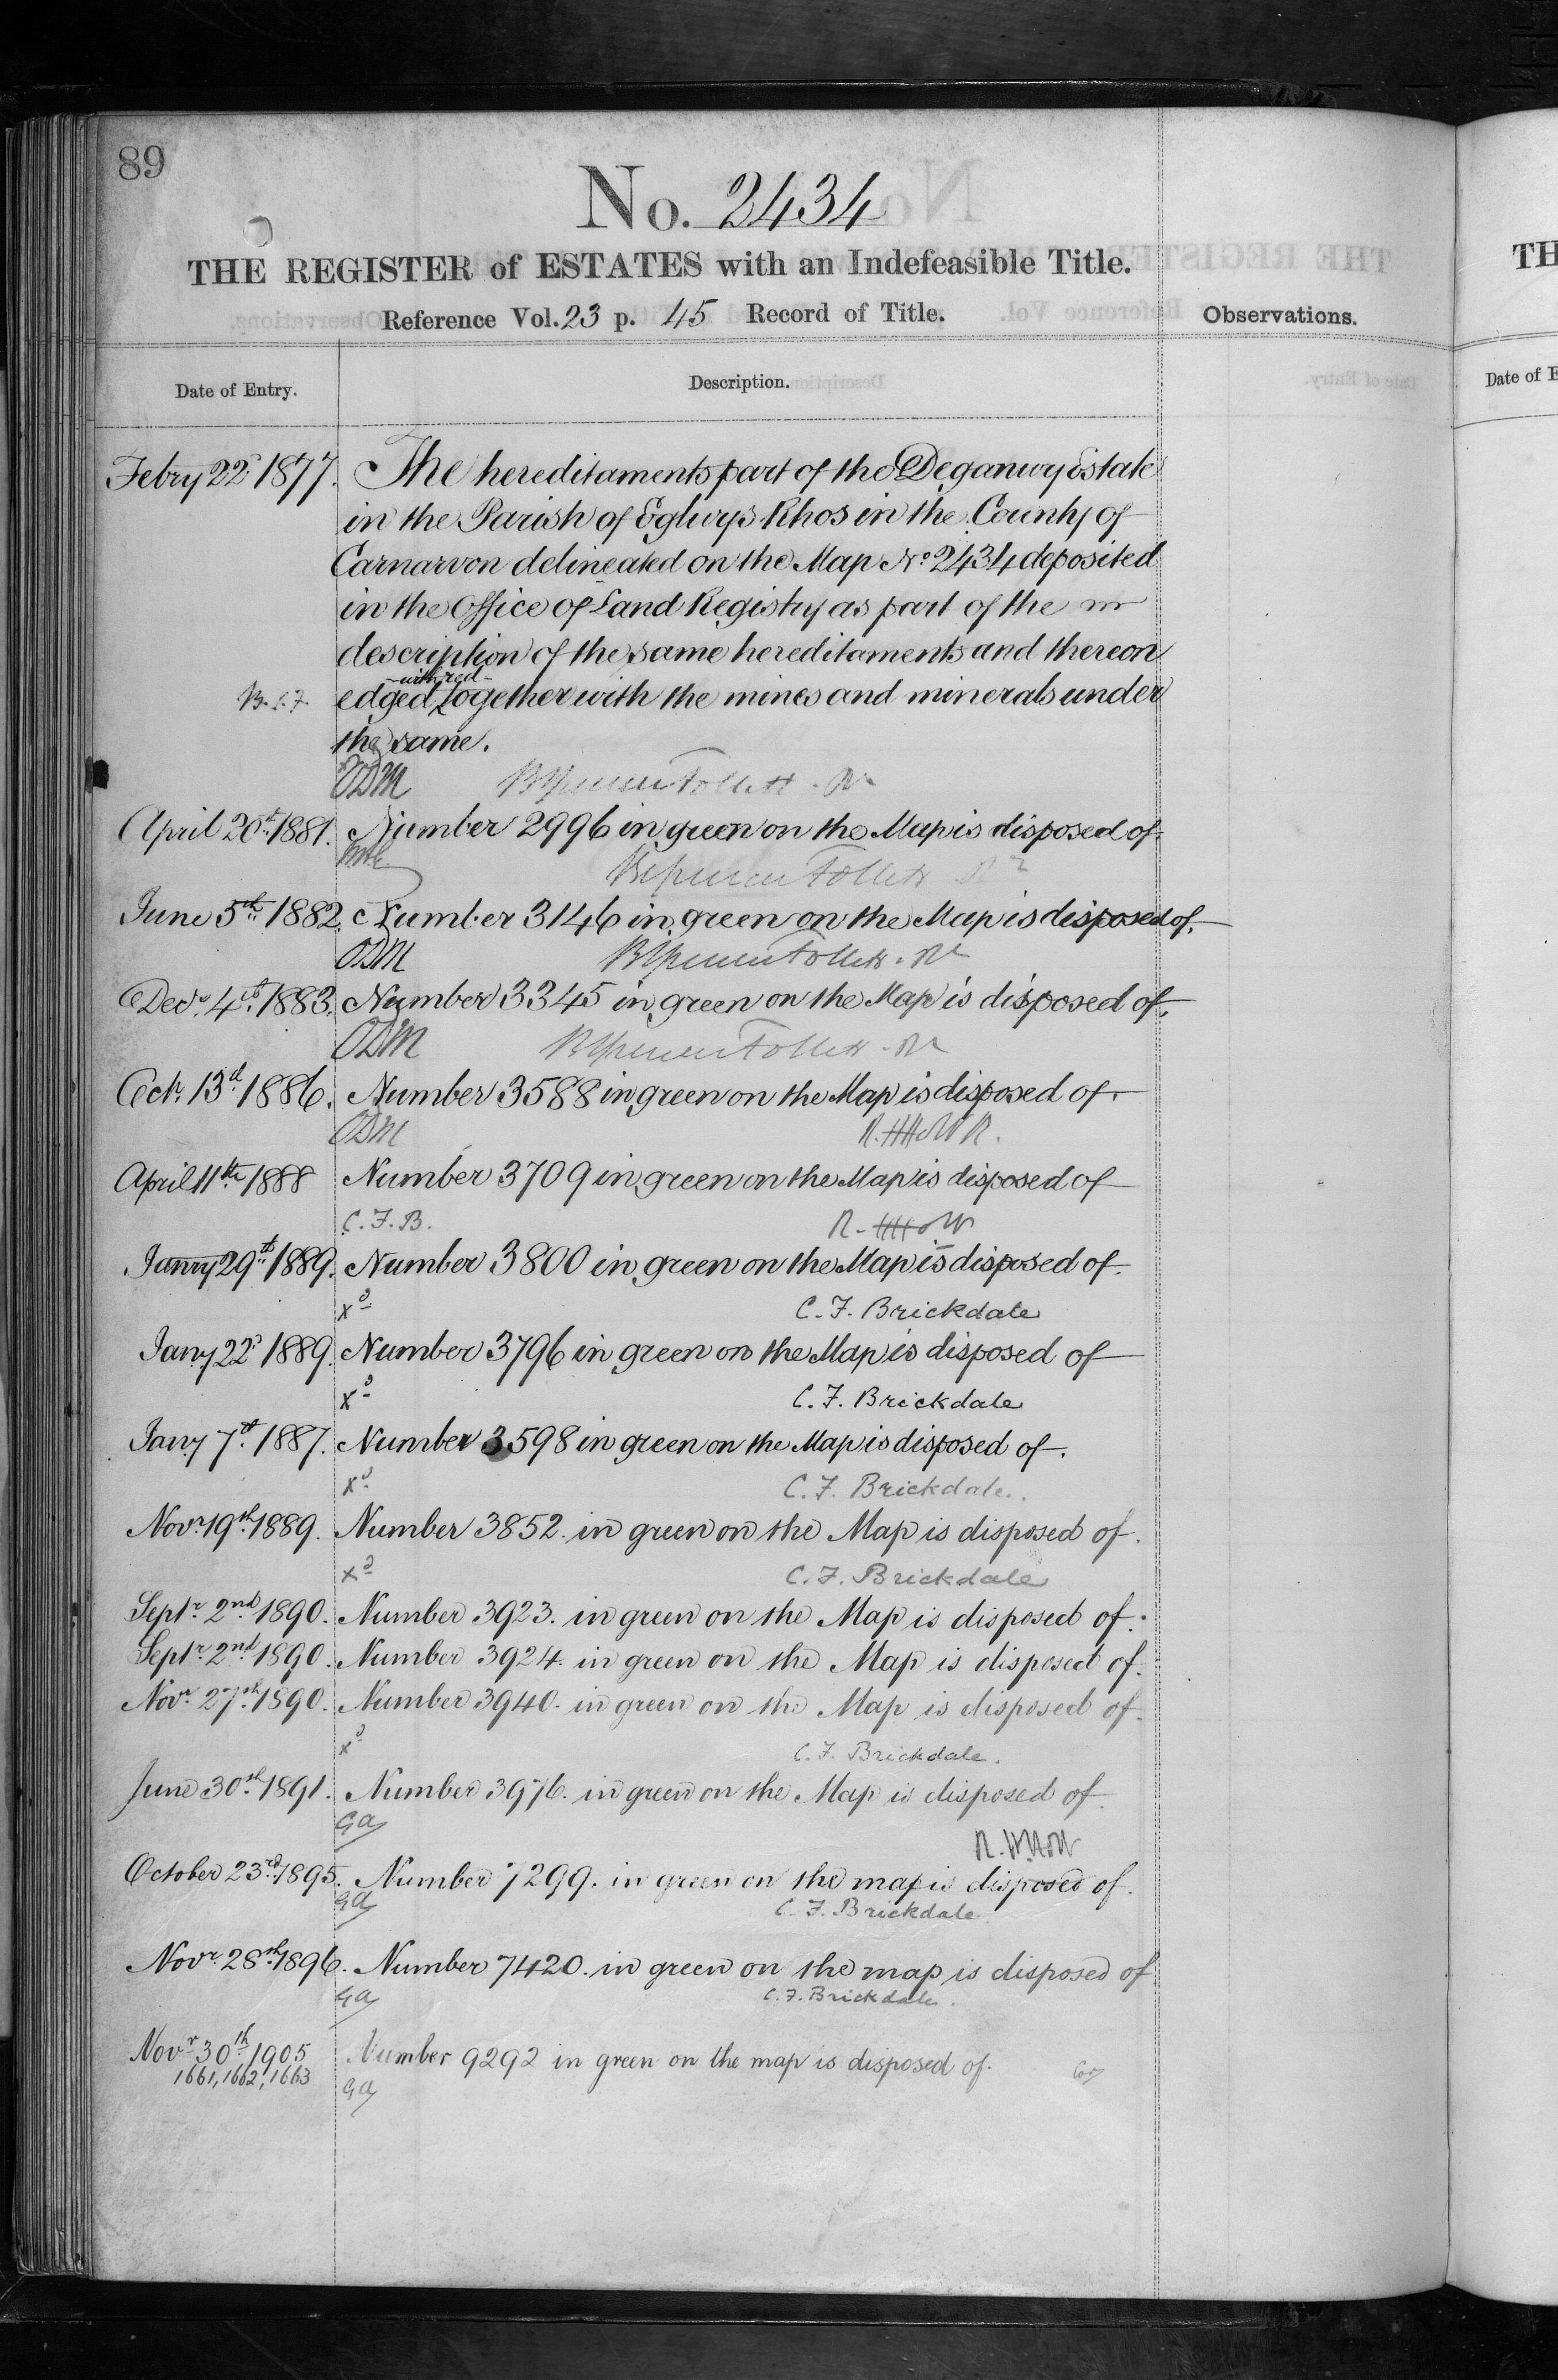 89
No. 2434
THE REGISTER of ESTATES with an Indefeasible Title.
Reference Vol. 23 p. 45 Record of Title.
Observations.
Date of Entry.
Description.
Febry 22d 1877. The hereditaments part of the Deganwy Estate
in the Parish of Eglwys Rhos in the County of
Carnarvon delineated on the Map No 2434 deposited
in the Office of Land Registry as part of the
description of the same hereditaments and thereon
-with red-
B.S.F. edged together with the mines and minerals under
the same.
ODM
April 20th 1881. Number 2996 in green on the Map is disposed of.
June 5th 1882. Number 3146 in green on the Map is disposed of.
ODM
Decr 4th 1883. Number 3345 in green on the Map is disposed of.
ODM
Octr 13th 1886. Number 3588 in green on the Map is disposed of.
ODM
April 11th 1888 Number 3709 in green on the Map is disposed of
C.F.B.
Janry 29th 1889. Number 3800 in green on the Map is disposed of.
xd C.F. Brickdale
Jany 22d 1889. Number 3796 in green on the Map is disposed of
xd C.F. Brickdale
Jany 7th 1887. Number 3598 in green on the Map is disposed of.
xd C.F. Brickdale.
Novr 19th 1889. Number 3852. in green on the Map is disposed of.
xd C.F. Brickdale
Septr 2nd 1890. Number 3923. in green on the Map is disposed of.
Septr 2nd 1890. Number 3924. in green on the Map is disposed of.
Novr 27th 1890. Number 3940. in green on the Map is disposed of.
xd C.F. Brickdale.
June 30th 1891. Number 3976. in green on the Map is disposed of.
Ga
October 23rd 1895. Number 7299. in green on the map is disposed of.
Ga C.F. Brickdale
Novr 28th 1896. Number 7420. in green on the map is disposed of
Ga C.F. Brickdale.
Novr 30th 1905 Number 9292 in green on the map is disposed of.
1661, 1662, 1663
Ga
TH
Date of E